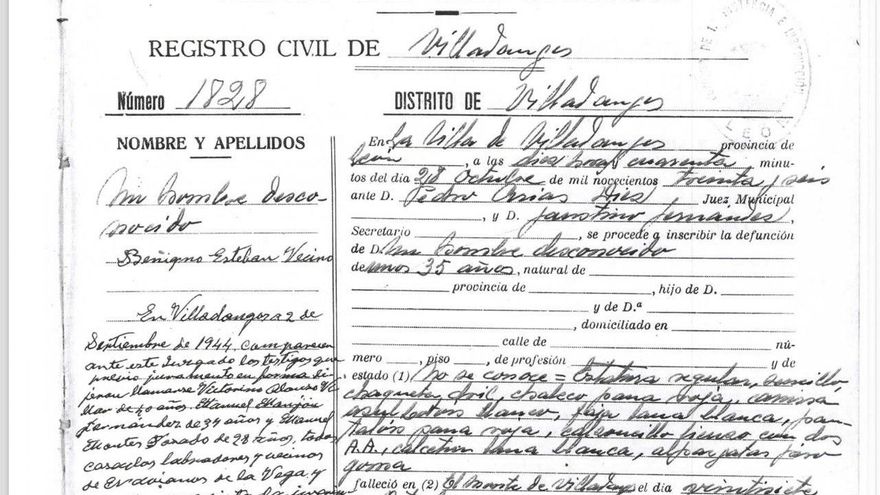 REGISTRO CIVIL DE Villadangos
Número 1828
DISTRITO DE Villadangos
NOMBRE Y APELLIDOS
Un hombre desco-
nocido
Benigno Esteban Vecino
En Villadangos a 2 de
Septiembre de 1944, comparecen
ante este Juzgado los testigos que
previo juramento en forma di-
jeron llamarse Victorino Alonso Vi-
llar de 40 años, Manuel Manjón
Fernández de 34 años y Manuel
Montes Jurado de 28 años, todos
casados labradores y vecinos
de Gravianos de la Vega y
En La Villa de Villadangos provincia de
León, a las diez horas cuarenta minu-
tos del día 28 Octubre de mil novecientos treinta y seis
ante D. Pedro Arias Diez Juez Municipal
, y D. Faustino Fernandez,
Secretario, se procede a inscribir la defunción
de D. Un hombre desconocido
de unos 35 años, natural de
provincia de , hijo de D.
y de D.ª
, domiciliado en
calle de nú-
mero , piso , de profesión y de
estado (1) No se conoce = Estatura regular, sencillo
chaqueta dril, chaleco pana roja, camisa
blanco, faja lana blanca, pan-
talón pana roja, calzoncillo lienzo con dos
A.A, calcetin lana blanca, alpargatas piso
goma
falleció en (2) El Monte de Villadangos el día veintisiete